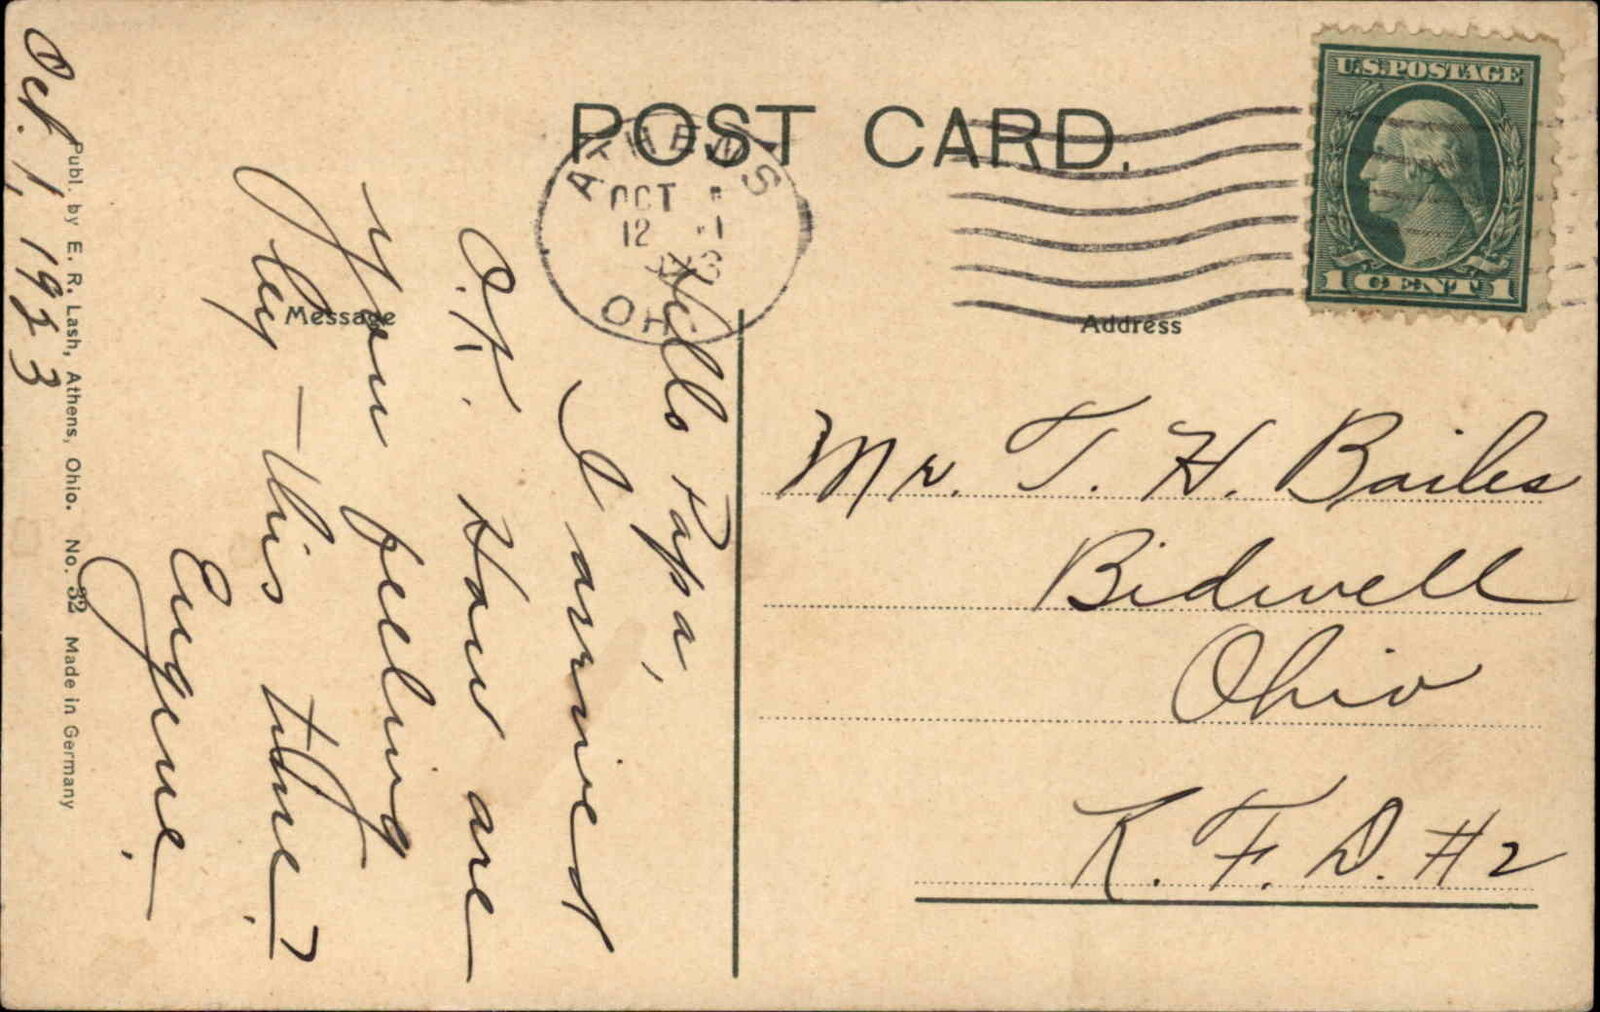 POST CARD.
ATHENS
OCT 1
12
OHIO
U.S. POSTAGE
1 CENT 1
Message
Address
Oct. 1, 1923
Hello Papa,
I arrived
O.K. How are
you feeling
by this time?
Eugene.
Mr. T. H. Bailes
Bidwell
Ohio
R. F. D. #2
Publ. by E. R. Lash, Athens, Ohio. No. 32 Made in Germany